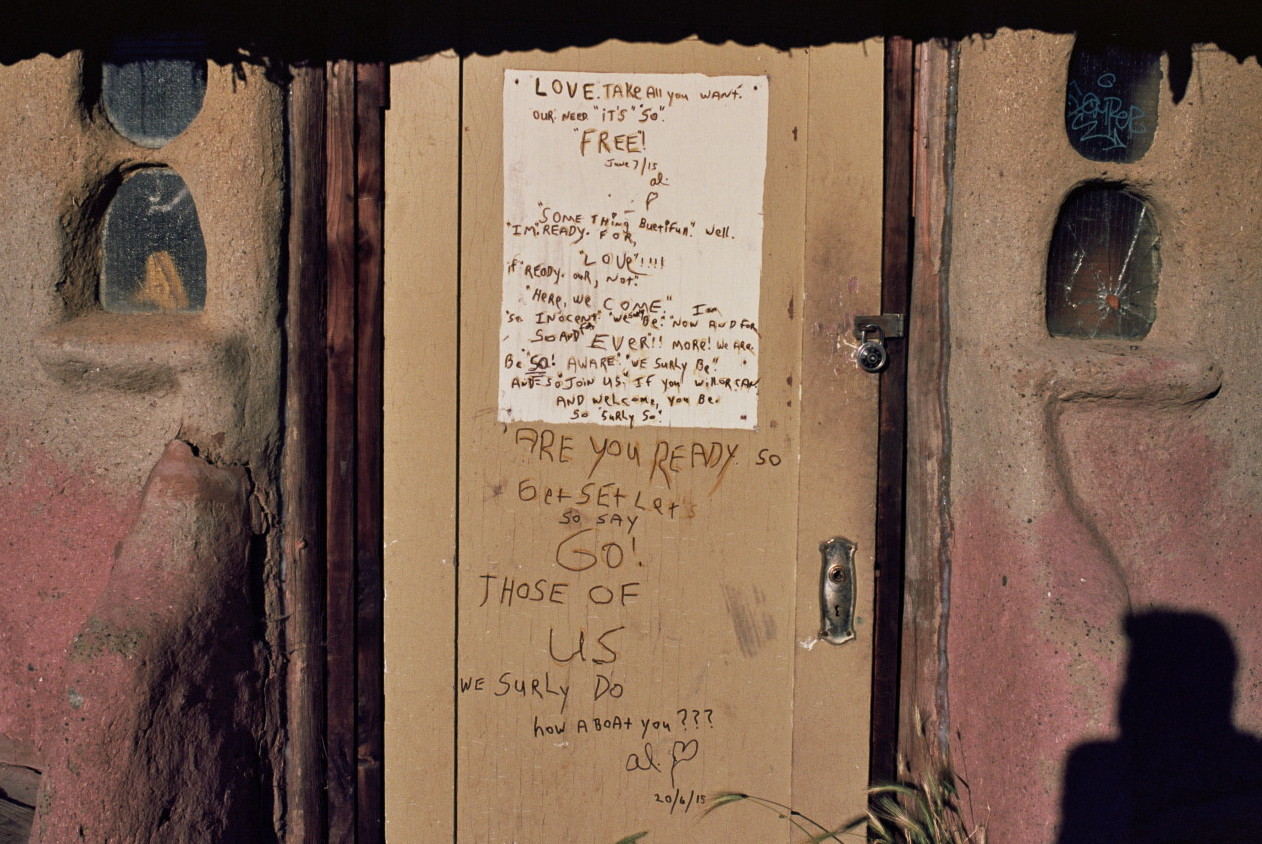 LOVE. TAKE All you WANT.
OUR. NEED "IT'S" "SO".
"FREE!
June 7/15
al.
"SOME THing Buetifun." Well.
"I'M" READY. FOR,
"LOVE"!!!!
if "READY. OUR, NOT."
"HERE, WE COME" I am
"so INOCENT" "WE Be." NOW AND FOR
So AND EVER!! MORE! WE ARE.
Be "SO! AWARE "WE SURLY Be"
AND SO JOIN US. IF you WILL OR CAN
AND WELCOME, YOU BE.
SO "SURLY SO."
ARE YOU READY. SO
GET SET LET'S
SO SAY
GO!
THOSE OF
US
WE SURLY DO
how ABOAt you???
al.
20/6/15